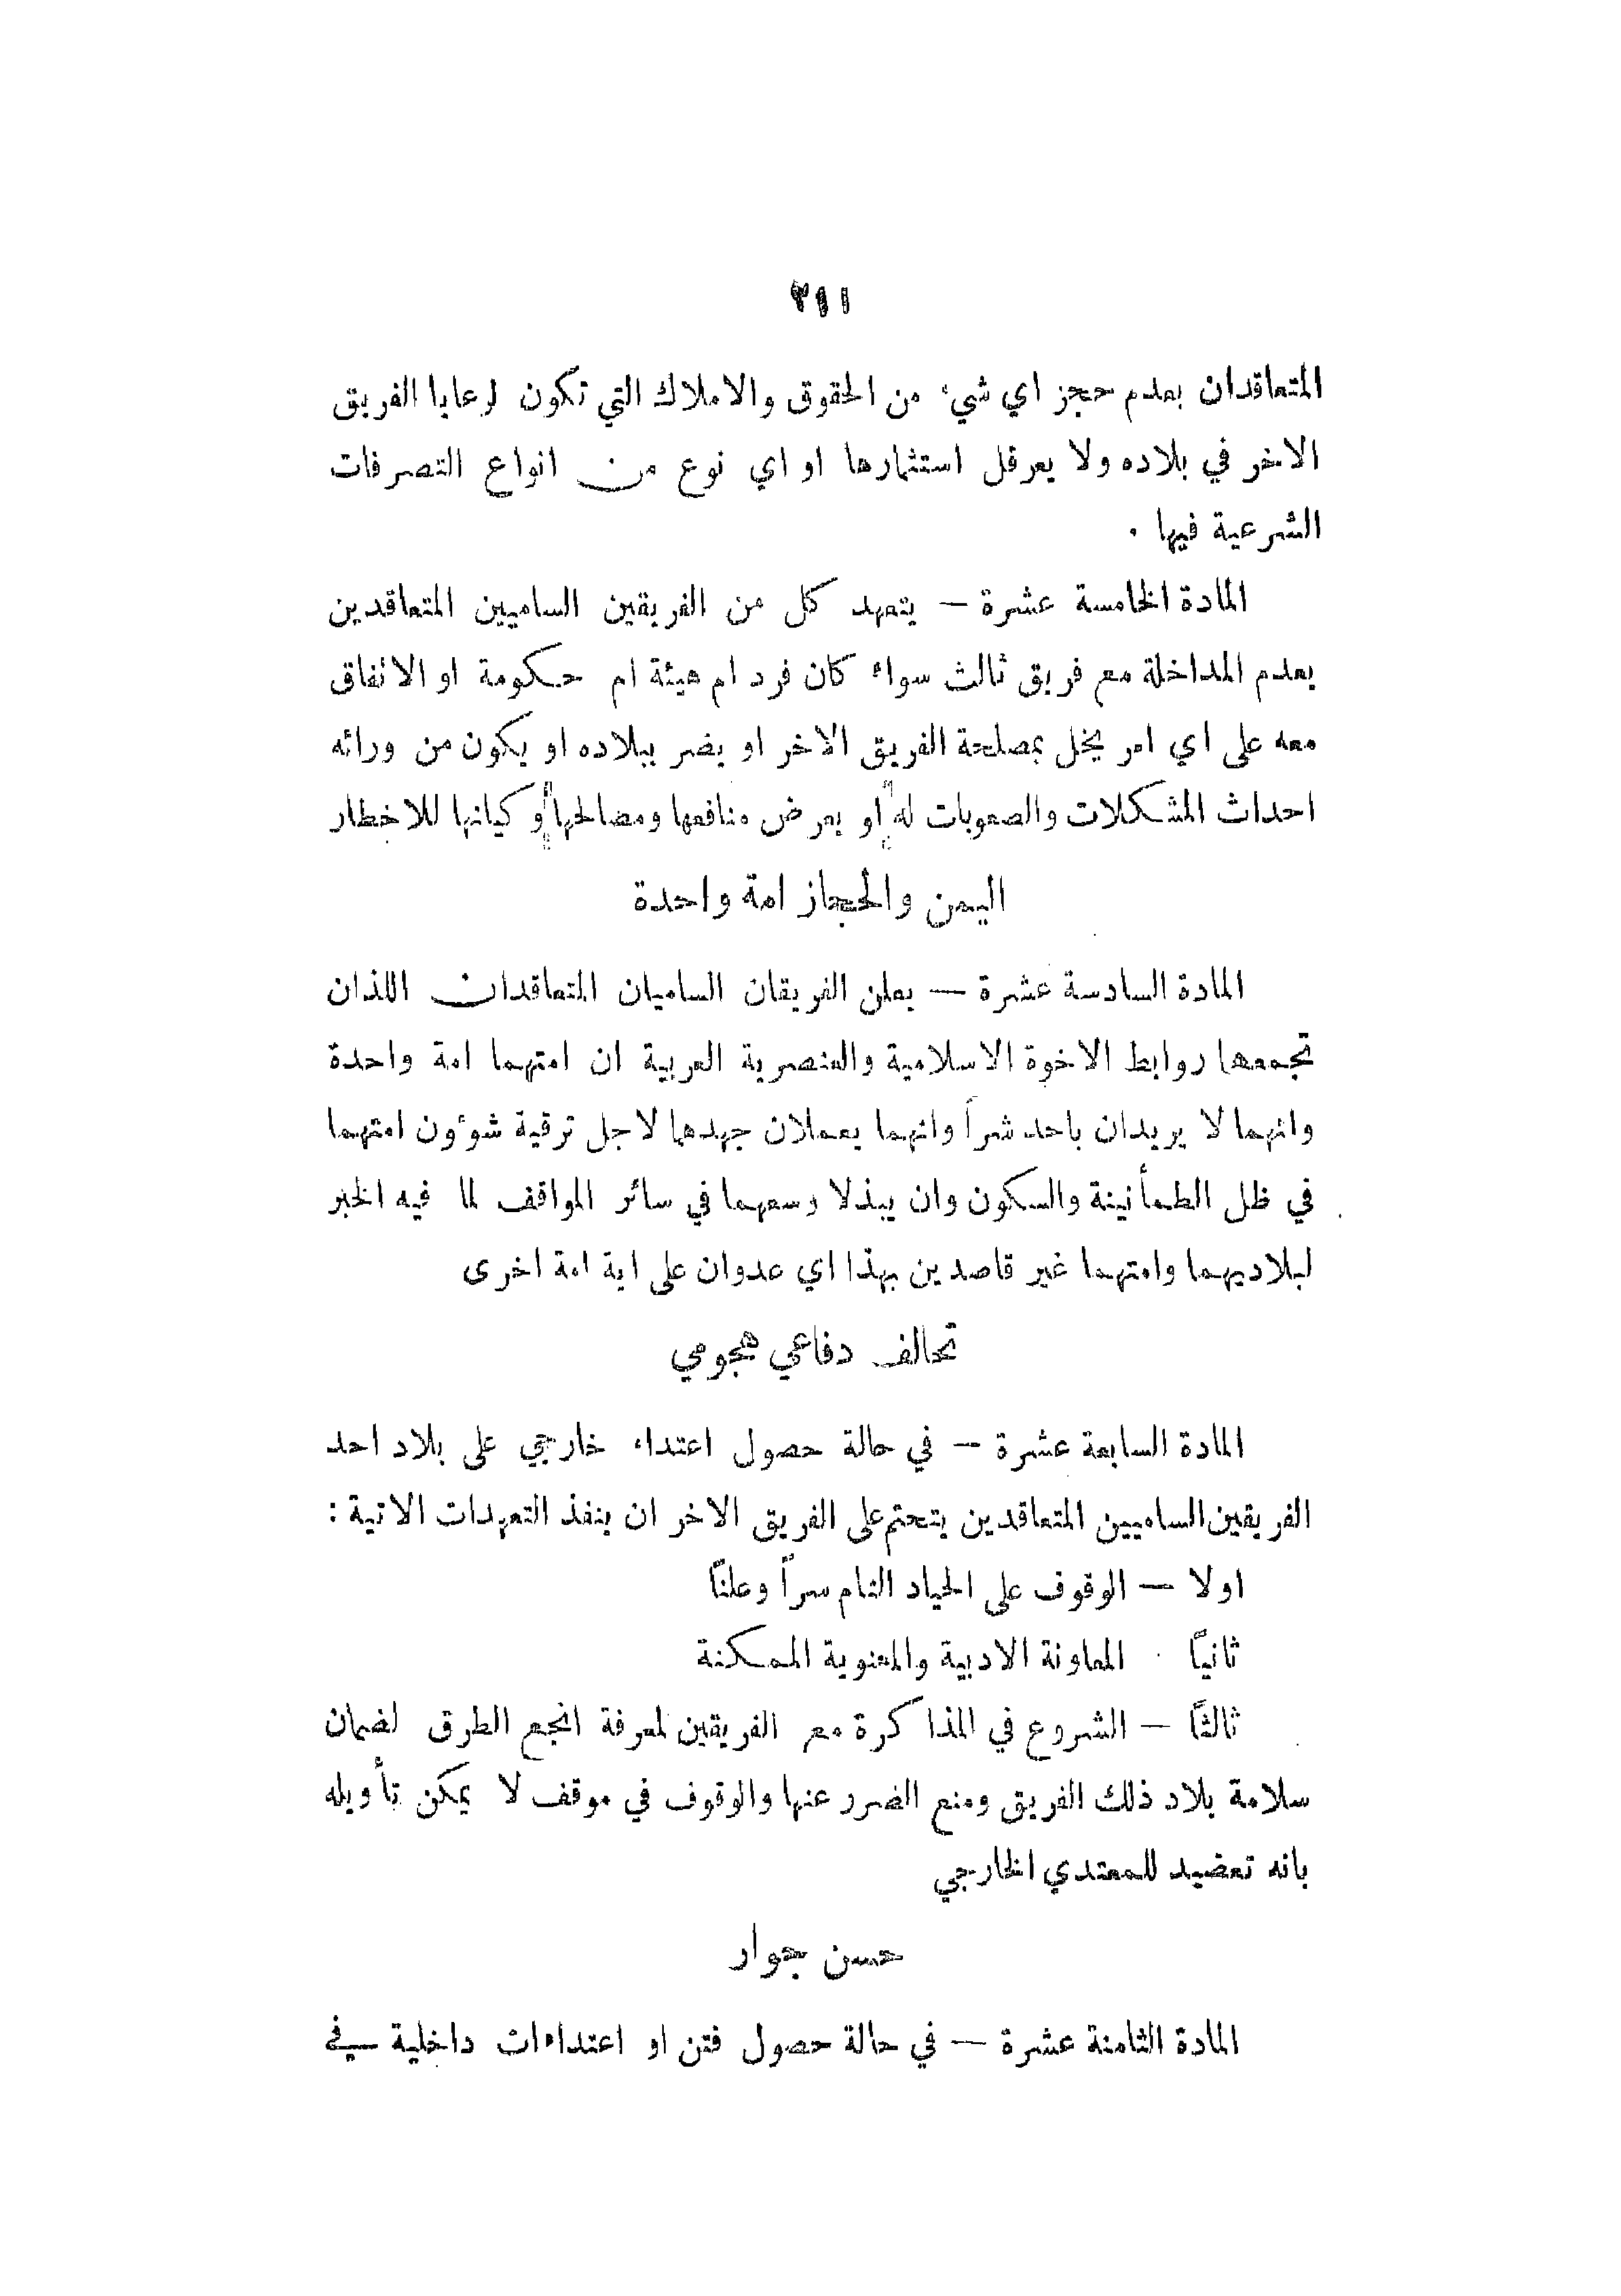 ٣١١
المتعاقدان بعدم حجز اي شيء من الحقوق والاملاك التي تكون لرعايا الفريق
الاخر في بلاده ولا يعرقل استثمارها او اي نوع من انواع التصرفات
الشرعية فيها .
المادة الخامسة عشرة — يتعهد كل من الفريقين الساميين المتعاقدين
بعدم المداخلة مع فريق ثالث سواء كان فرد ام هيئة ام حكومة او الاتفاق
معه على اي امر يخل بمصلحة الفريق الاخر او يضر ببلاده او يكون من ورائه
احداث المشكلات والصعوبات له او يعرض منافعها ومصالحها و كيانها للاخطار
اليمن والحجاز امة واحدة
المادة السادسة عشرة — يعلن الفريقان الساميان المتعاقدان اللذان
تجمعها روابط الاخوة الاسلامية والعنصرية العربية ان امتهما امة واحدة
وانهما لا يريدان باحد شراً وانهما يعملان جهدهما لاجل ترقية شوءون امتهما
في ظل الطمأنينة والسكون وان يبذلا وسعهما في سائر المواقف لما فيه الخير
لبلاديهما وامتهما غير قاصدين بهذا اي عدوان على اية امة اخرى
تحالف دفاعي هجومي
المادة السابعة عشرة — في حالة حصول اعتداء خارجي على بلاد احد
الفريقين الساميين المتعاقدين يتحتم على الفريق الاخر ان ينفذ التعهدات الاتية :
اولا — الوقوف على الحياد التام سراً وعلناً
ثانياً . المعاونة الادبية والمعنوية الممكنة
ثالثاً — الشروع في المذاكرة مع الفريقين لمعرفة انجع الطرق لضمان
سلامة بلاد ذلك الفريق ومنع الضرر عنها والوقوف في موقف لا يمكن تأويله
بانه تعضيد للمعتدي الخارجي
حسن جوار
المادة الثامنة عشرة — في حالة حصول فتن او اعتداءات داخلية في